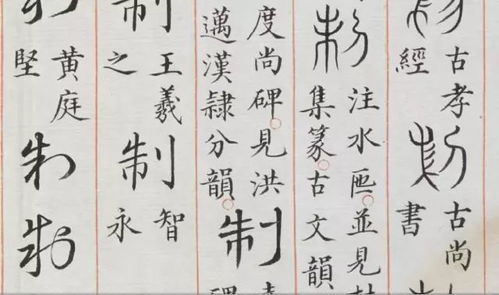 古孝
經
古尚
書
注水匜並見
集篆古文韻
度尚碑見洪
邁漢隸分韻
制
制
王羲
之
制
智
永
黄庭
堅